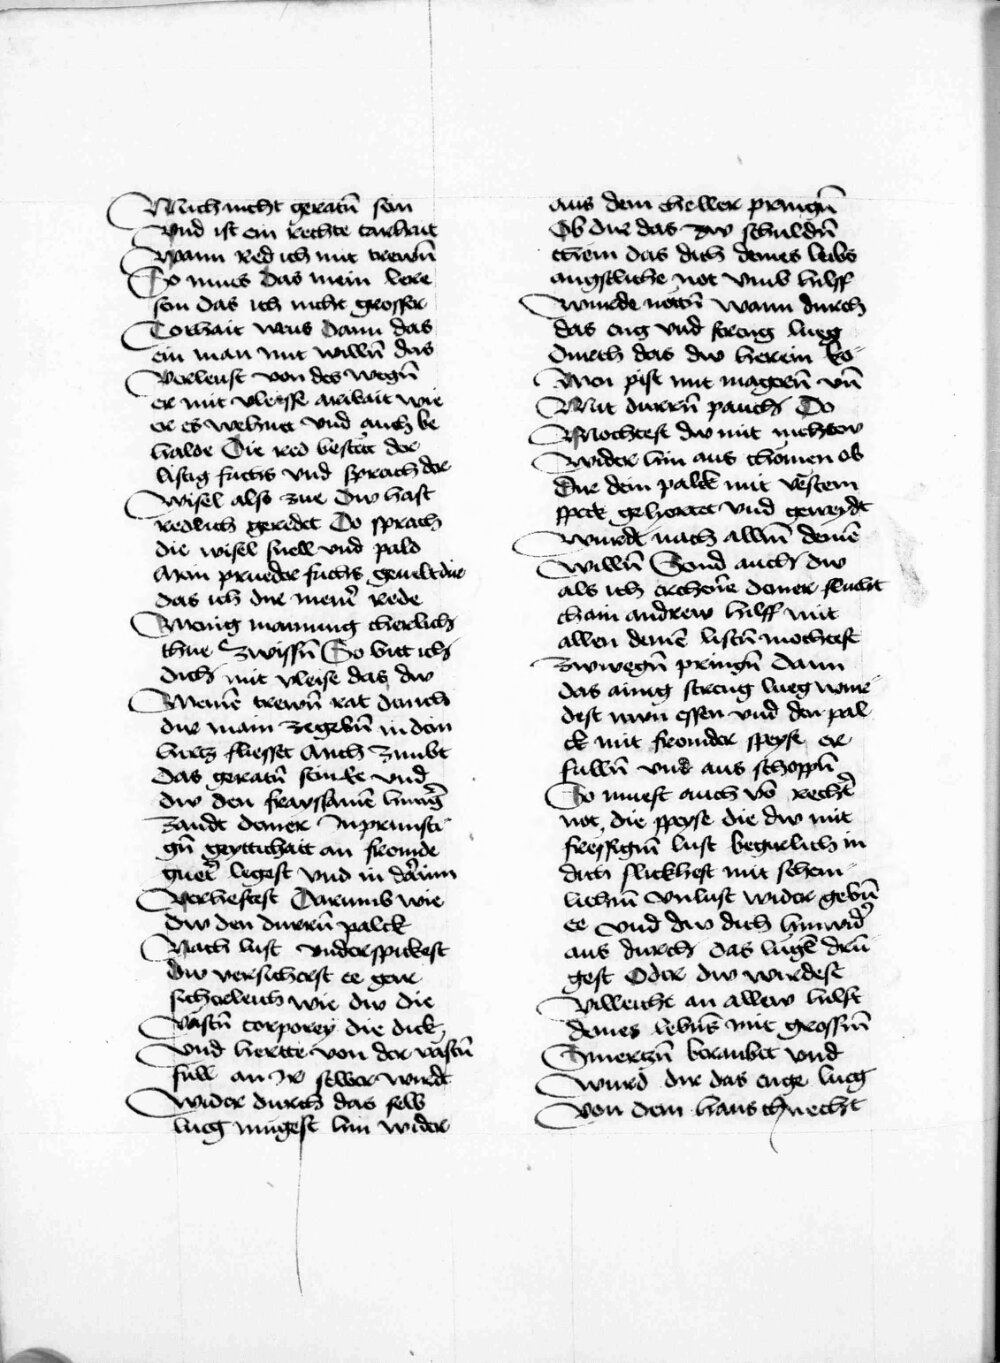 Mich nicht geratn̄ sein
Vnd ist ein rechte tarhait
Wann red ich mit trewn̄
So mues das mein lere
sein das ich nicht grosser
Torhait wais Dann das
ein man mit willn̄ das
Verleust von des wegn̄
er mit vleisse arwait wie
er es wehuet vnd auch be
halde Die red bestett der
listig fuchs vnd sprach der
Wisel also zue Dw hast
redlich geredet Do sprach
die wisel snell vnd pald
Mein prueder fuchs geuelt dir
das ich dir meinr̄ rede
Wenig manung cherlich
thue zwissn̄ So bitt ich
dich mit vleise das dw
Meinē trewn̄ rat dench
dir main zegebn̄ in dein
hertz fliesset Auch zimbt
das geratn̄ sein ee vnd
dw den frayssamē hungr̄
zandt deiner Inprunsti
gn̄ geyttichait an fromde
guetr̄ legest vnd in darinn
Verheftest Darumb wie
dw den durrn̄ palck
Nach lust vnderspickest
dw versicherst ee gar
sicherleich wie dw die
Vastn̄ corporey die dick
vnd hertte von der vastn̄
full an Ir selber wirdt
Wider durch das selb
lueg mugest hin wider
aus dem cheller pringn̄
Ob dir das zw schuldn̄
chem das dich deines leibs
angstliche not vmb hilff
Wurde nottn̄ wann durch
das eng vnd streng lueg
durch das dw herein ko-
Men pist mit magern̄ vn̄
Mit durrn̄ pauch Do
Mochtest dw mit nichtew
Wider hin aus chomen ob
Dir dein palck mit vestem
speck gehertet vnd geweydt
Wurdt nach allm̄ deinē
Willn̄ Sond auch dw
als ich erchene deiner flucht
chain andrew hilff mit
allen deinē listn̄ mochtest
zwwegn̄ pringn̄ dann
das ainig streng lueg wur-
dest nwn essen vnd den pal
ck mit fromder speyse er-
fulln̄ vnd aus schoppn̄
So muest auch vō rechtr̄
not, die speyse die dw mit
fressign̄ lust begirlich in
dich slickhest mit schem-
lichm̄ vnlust wider gebn̄
ee vnd dw dich hinwidr̄
aus durch das lugē drin̄
gest Oder dw wurdest
Villeicht an allew hilft
deines lebn̄s mit grossm̄
Smertzn̄ beraubet vnd
Wurd dir das enge lueg
von dem hauschnecht